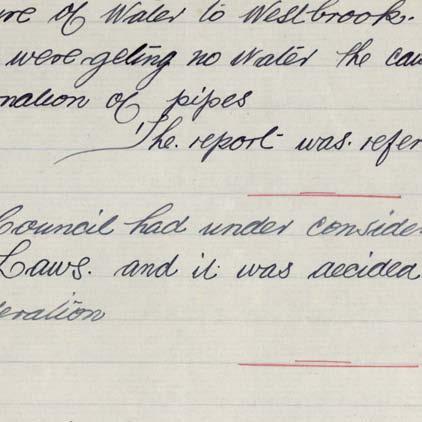 ure of Water to Westbrook.
were geting no Water the cau
nation of pipes
The. report was. refer
Council had under conside
Laws. and it was decided
eration